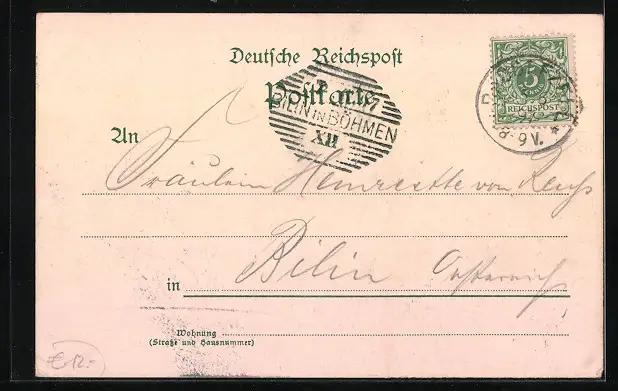 Deutsche Reichspost
Postkarte
BILIN IN BÖHMEN
XII
5
REICHSPOST
8-9V.
An
Fräulein Henriette von Reuss
in Bilin Oesterreich
Wohnung
(Straße und Hausnummer)
€12.-